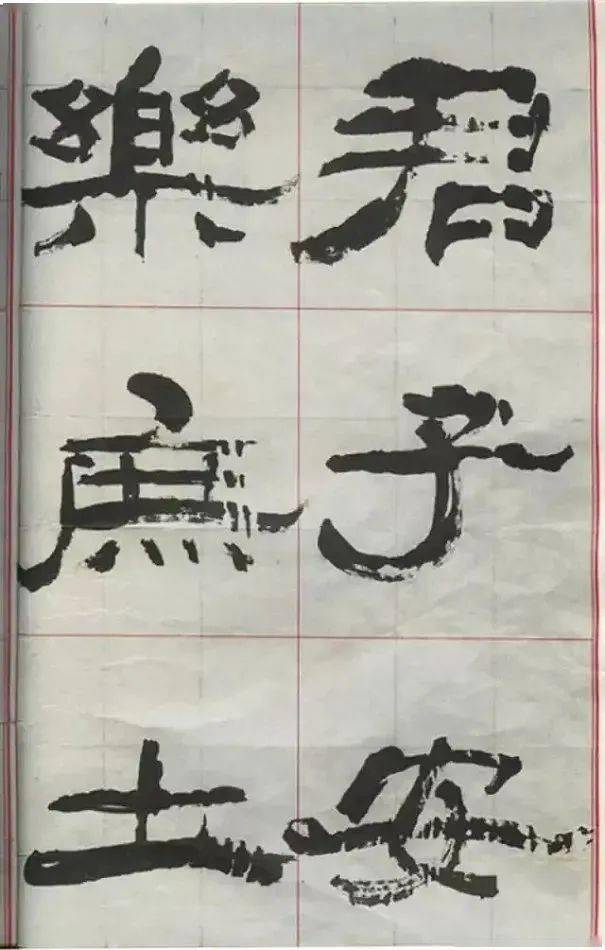 君子安
樂庶士